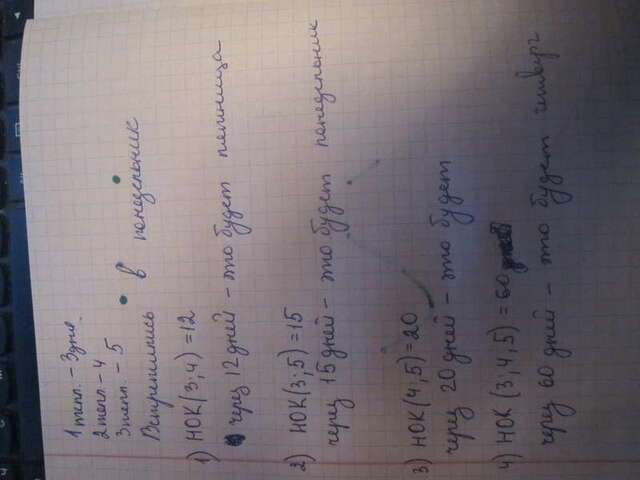 1 тепл. - 3 дня
2 тепл - 4
3 тепл. - 5
Встретились в понедельник
1) НОК(3;4) = 12
через 12 дней - это будет пятница
2) НОК(3;5) = 15
через 15 дней - это будет понедельник
3) НОК(4;5) = 20
через 20 дней - это будет
4) НОК (3;4,5) = 60
через 60 дней - это будет четверг